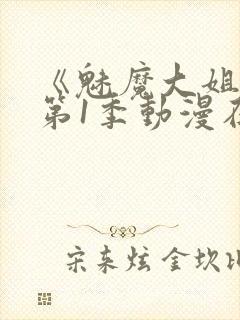 《魅魔大姐
第1季動漫在
宋东炫 金坎比